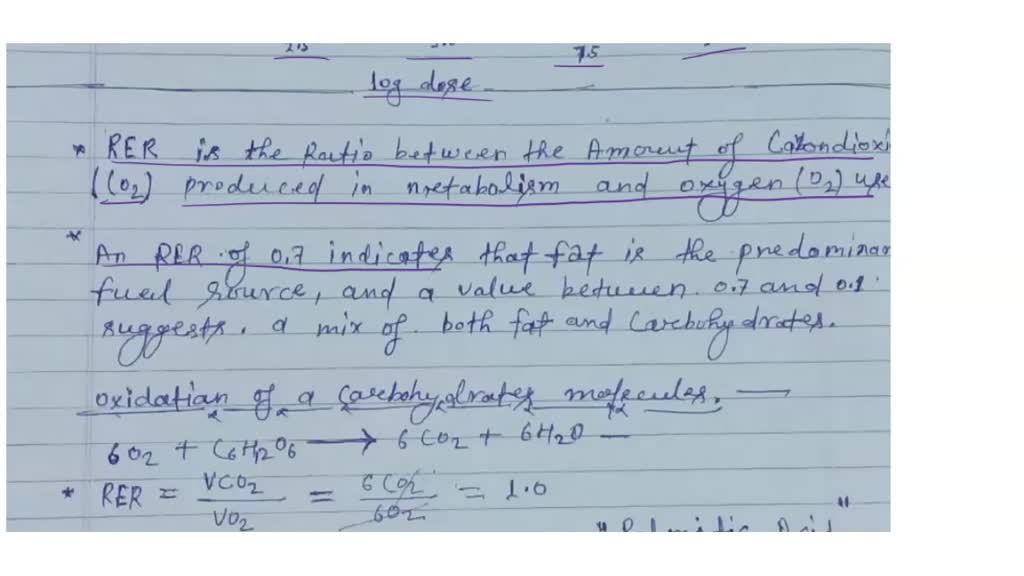 7.5
log dose
* RER is the Ratio between the Amount of Carbondioxi
(CO2) produced in metabolism and oxygen (O2) use
* An RER of 0.7 indicates that fat is the predominan
fuel source, and a value between 0.7 and 0.1
suggests. a mix of both fat and Carbohydrates.
oxidation of a Carbohydrates molecules. —
6O2 + C6H12O6 ⟶ 6CO2 + 6H2O —
* RER = VCO2/VO2 = 6CO2/6O2 = 1.0